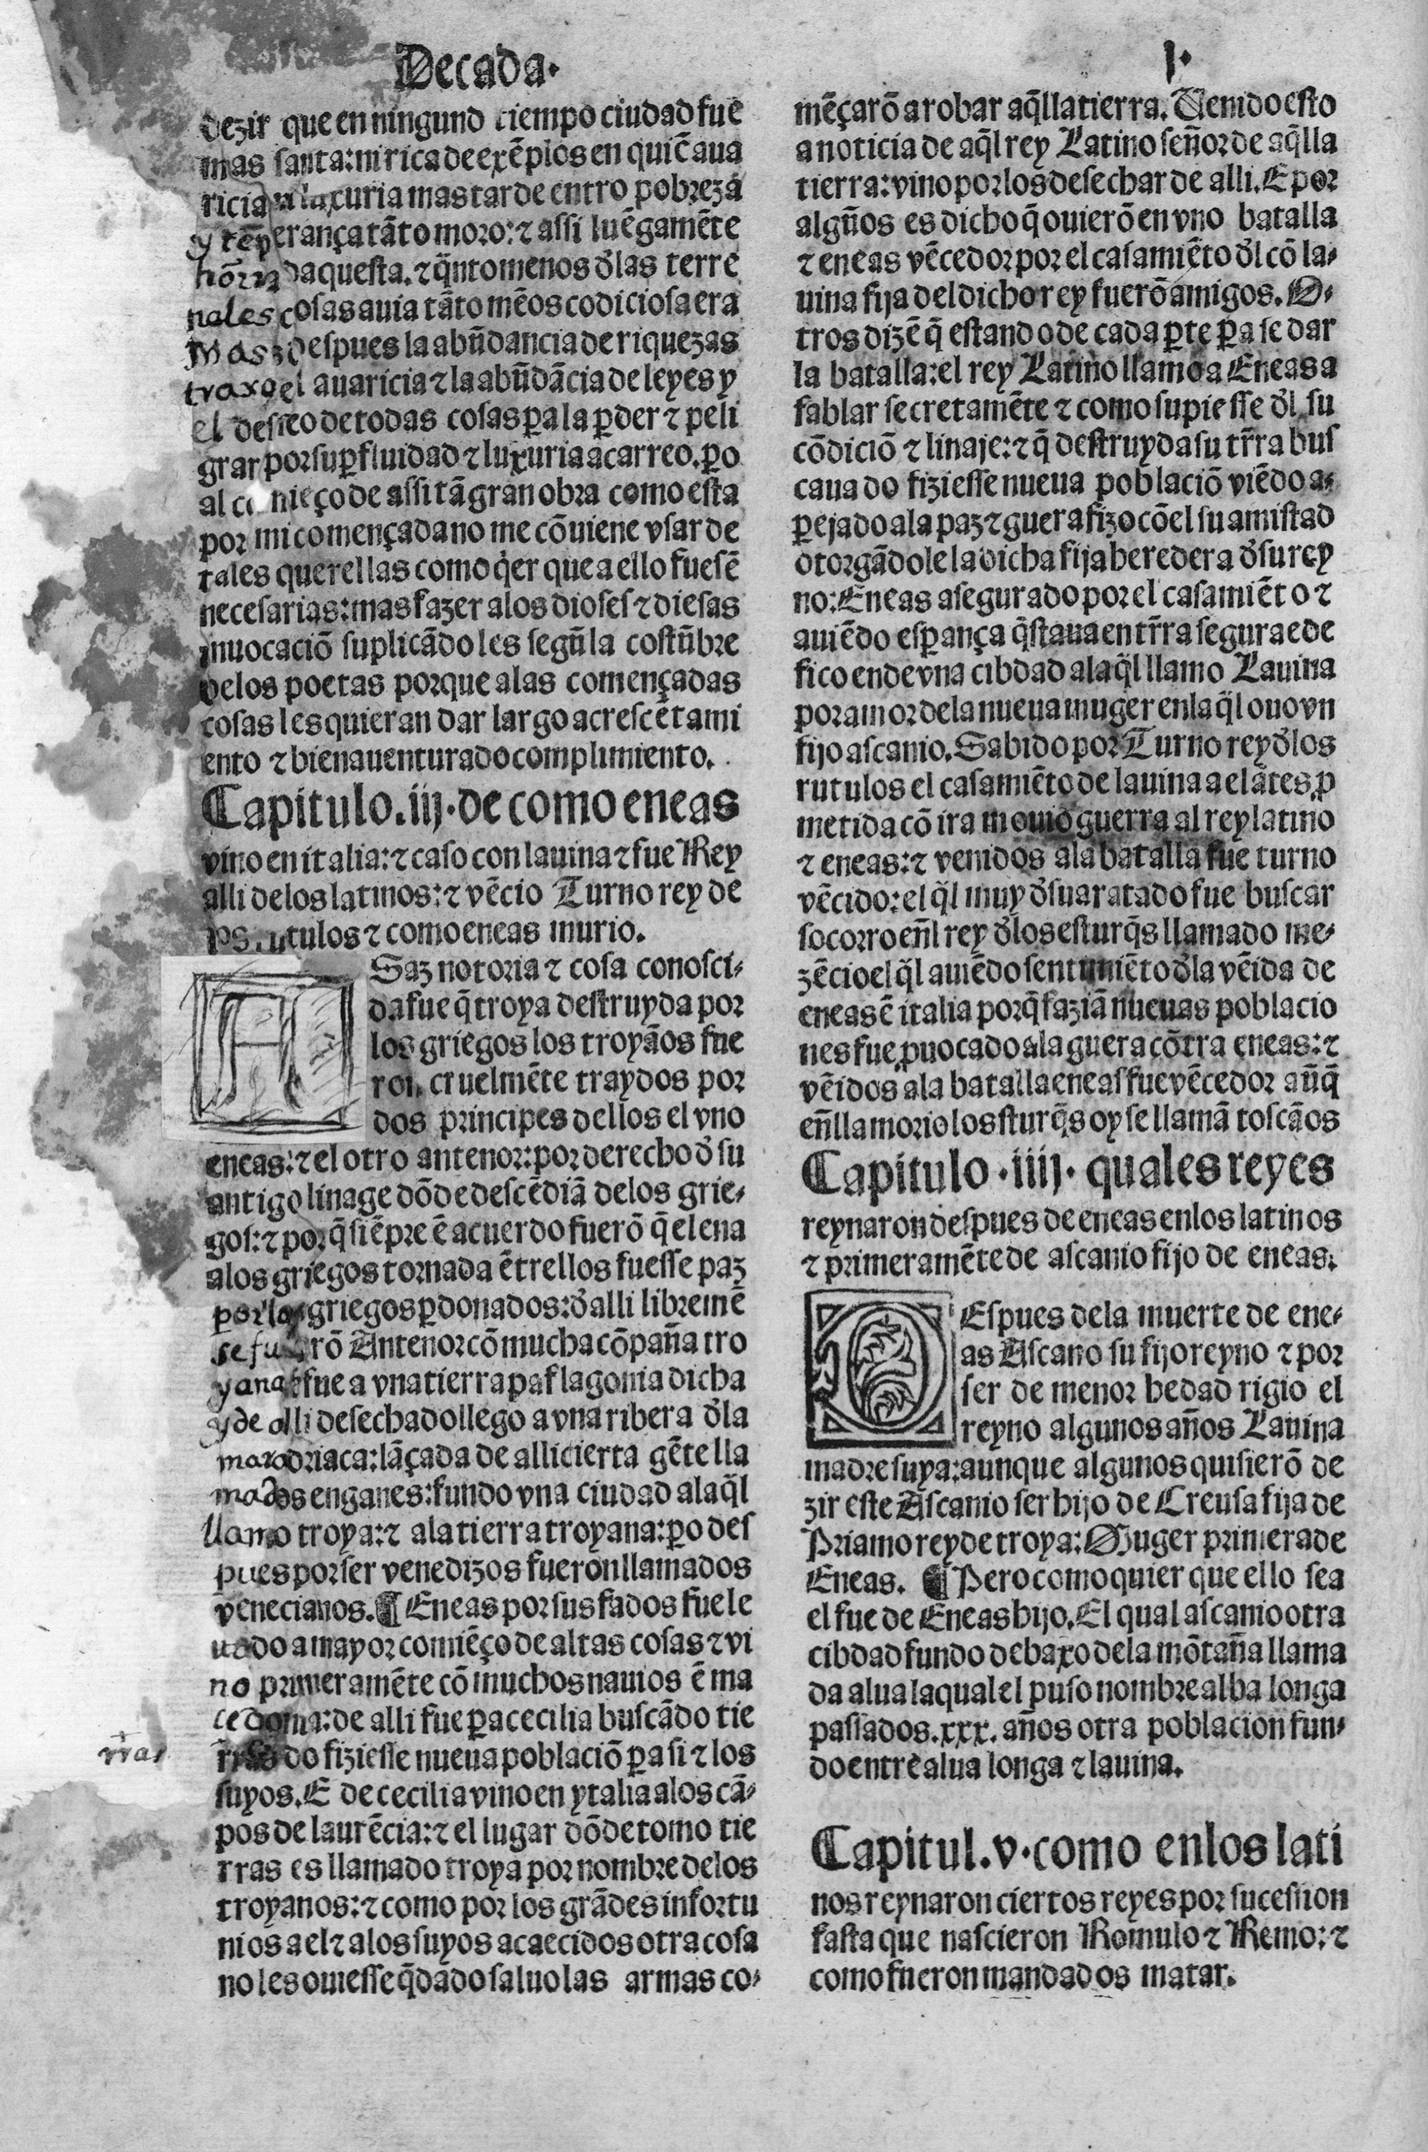 Decada.
I.
dezir que en ningund tiempo ciudad fue
mas santa: ni rica de exẽplos en quiẽ aua
ricia ni luxuria mas tarde entro pobreza
y tẽperança tãto moro: ⁊ assi luẽgamẽte
hõrrada questa. ⁊ q̃nto menos d̓las terre
nales cosas auia tãto mẽos codiciosa era
mas despues la abũdancia de riquezas
traxo el auaricia ⁊ la abũdãcia de leyes y
el desseo de todas cosas ꝑa la ꝑder ⁊ peli
grar por suꝑfluidad ⁊ luxuria acarreo. ꝑo
al comieço de assi tã gran obra como esta
por mi començada no me cõuiene vsar de
tales querellas como q̓er que a ello fuesẽ
necesarias: mas fazer alos dioses ⁊ diesas
inuocaciõ suplicãdoles segũ la costũbre
delos poetas porque alas començadas
cosas les quieran dar largo acrescẽtami
ento ⁊ bienauenturado complimiento.
Capitulo .iij. de como eneas
vino en italia: ⁊ caso con lauina ⁊ fue Rey
alli delos latinos: ⁊ vẽcio Turno rey de
tulos ⁊ como eneas murio.
ASaz notoria ⁊ cosa conosci-
da fue q̃ troya destruyda por
los griegos los troyãos fue
ron cruelmẽte traydos por
dos principes dellos el vno
eneas: ⁊ el otro antenor: por derecho d̓ su
antigo linage dõde descẽdiã delos grie-
gos: ⁊ por q̃ siẽpre ẽ acuerdo fuerõ q̃ elena
alos griegos tornada ẽtrellos fuesse paz
por los griegos ꝑdonados: d̓ alli libremẽ
se fuerõ Antenor cõ mucha cõpaña tro
yana fue a vna tierra paflagonia dicha
y de alli desechado llego a vna ribera d̓la
mar adriaca: lãçada de alli cierta gẽte lla
mados enganes: fundo vna ciudad ala q̃l
llamo troya: ⁊ ala tierra troyana: ꝑo des
pues por ser venedizos fueron llamados
venecianos. ¶ Eneas por sus fados fue le
uado a mayor comiẽço de altas cosas ⁊ vi
no primeramẽte cõ muchos nauios ẽ ma
cedonia: de alli fue ꝑa cecilia buscãdo tie
rras do fiziesse nueua poblaciõ ꝑa si ⁊ los
rras
suyos. E de cecilia vino en ytalia alos cã-
pos de laurẽcia: ⁊ el lugar dõde tomo tie
rras es llamado troya por nombre delos
troyanos: ⁊ como por los grãdes infortu
nios a el ⁊ alos suyos acaecidos otra cosa
no les ouiesse q̃dado saluo las armas co-
mẽçarõ a robar aq̃lla tierra. Uenido esto
a noticia de aq̃l rey Latino señor de aq̃lla
tierra: vino por los desechar de alli. E por
algũos es dicho q̃ ouierõ en vno batalla
⁊ eneas vẽcedor por el casamiẽto d̓l cõ la-
uina fija del dicho rey fuerõ amigos. O-
tros dizẽ q̃ estando de cada ꝑte ꝑa se dar
la batalla: el rey Latino llamo a Eneas a
fablar secretamẽte ⁊ como supiesse d̓l su
cõdiciõ ⁊ linaje: ⁊ q̃ destruyda su tr̃ra bus
caua do fiziesse nueua poblaciõ viẽdo a-
ꝑejado ala paz ⁊ guerra fizo cõel su amistad
otorgãdole la dicha fija heredera d̓ su rey
no: Eneas asegurado por el casamiẽto ⁊
auiẽdo esꝑança q̃ staua en tr̃ra segura ede
fico ende vna cibdad ala q̃l llamo Lauina
por amor dela nueua muger enla q̃l ouo vn
fijo ascanio. Sabido por Turno rey d̓los
rutulos el casamiẽto de lauina a el ãtes ꝓ
metida cõ ira mouio guerra al rey latino
⁊ eneas: ⁊ venidos ala batalla fue turno
vẽcido: el q̃l muy d̓suaratado fue buscar
socorro eñl rey d̓los esturq̃s llamado me-
zẽcio el q̃l auiẽdo sentimiẽto d̓la vẽida de
eneas ẽ italia porq̃ faziã nueuas poblacio
nes fue ꝓuocado ala guera cõtra eneas: ⁊
vẽidos ala batalla eneas fue vẽcedor aũq̃
eñlla morio los sturq̃s oy se llamã toscãos
Capitulo .iiij. quales reyes
reynaron despues de eneas enlos latinos
⁊ primeramẽte de ascanio fijo de eneas.
DEspues dela muerte de ene-
as Ascano su fijo reyno ⁊ por
ser de menor hedad rigio el
reyno algunos años Lauina
madre suya: aunque algunos quisierõ de
zir este Ascanio ser hijo de Creusa fija de
Priamo rey de troya: Muger primera de
Eneas. ¶ Pero como quier que ello sea
el fue de Eneas hijo. El qual ascanio otra
cibdad fundo debaxo dela mõtaña llama
da alua laqual el puso nombre alba longa
passados .xxx. años otra poblacion fun-
do entre alua longa ⁊ lauina.
Capitul. v. como enlos lati
nos reynaron ciertos reyes por sucession
fasta que nascieron Romulo ⁊ Remo: ⁊
como fueron mandados matar.